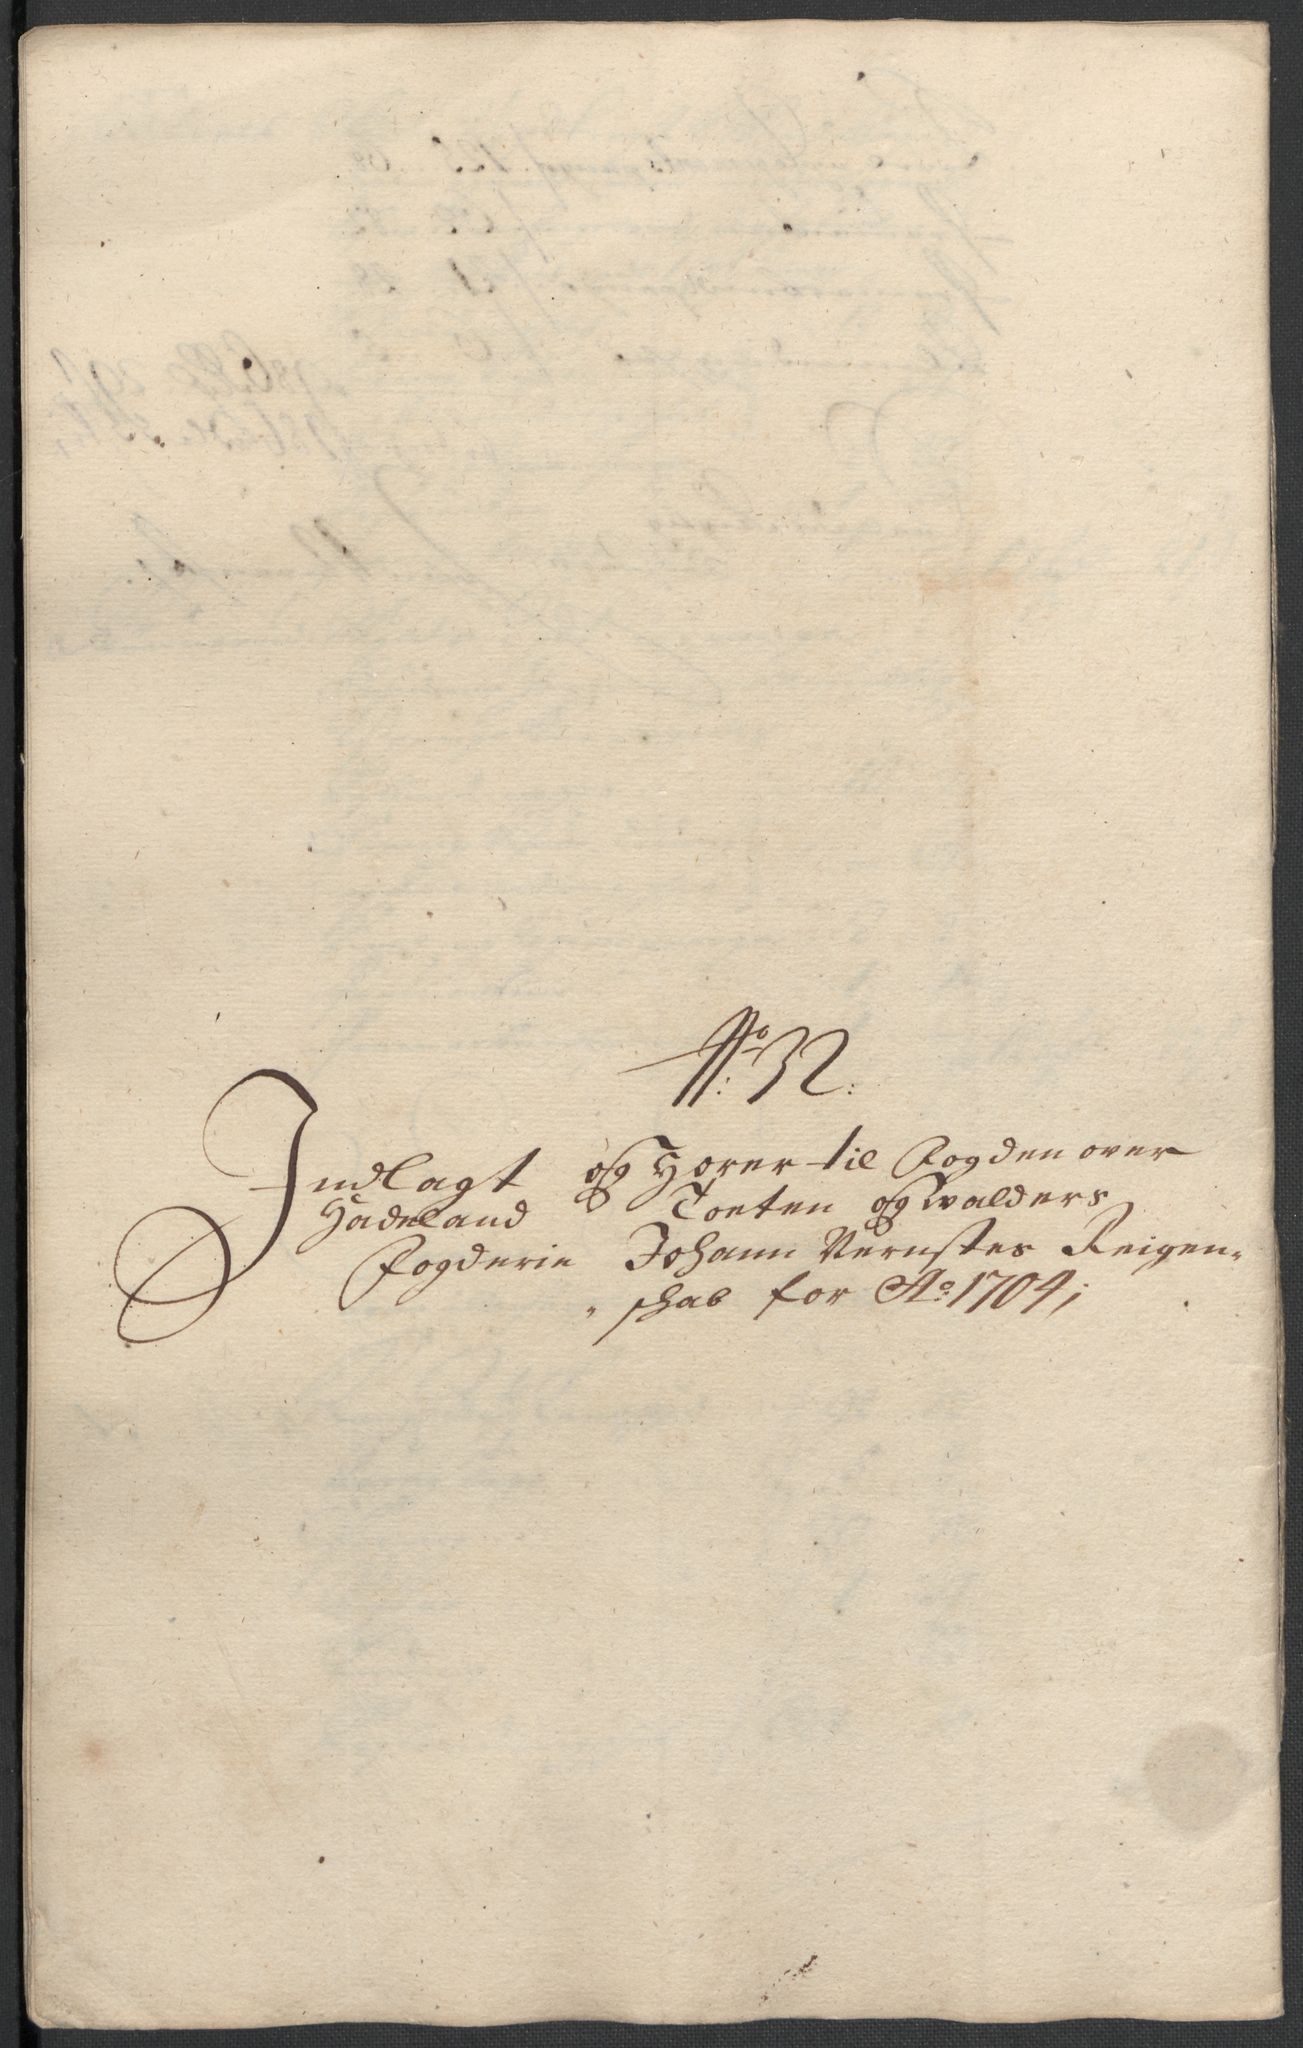 No: 32:
Indlagt og Hører til Fogden over
Hadeland Toeten og Walders
Fogderie Johann Vernstes Reigen-
skab for Ao: 1704;